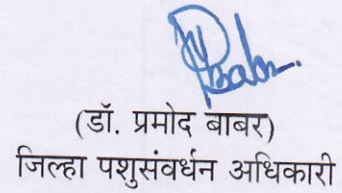 (डॉ. प्रमोद बाबर)
जिल्हा पशुसंवर्धन अधिकारी